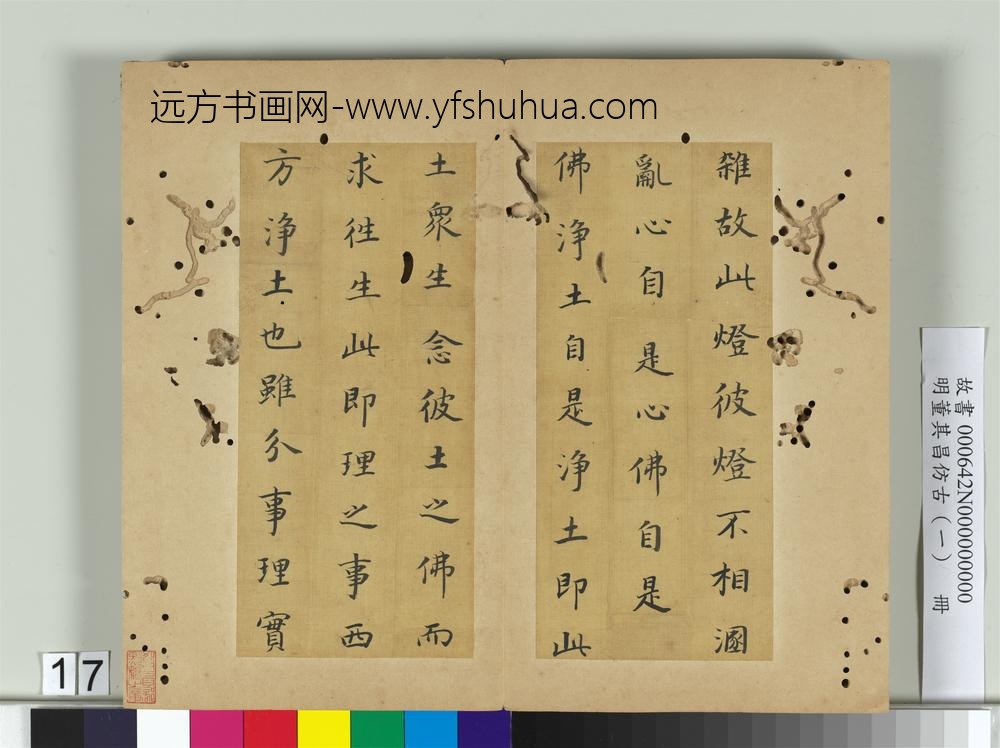 远方书画网-www.yfshuhua.com
雜故此燈彼燈不相溷
亂心自是心佛自是
佛淨土自是淨土即此
土眾生念彼土之佛而
求往生此即理之事西
方淨土也雖分事理實
故書 000642N000000000
明董其昌仿古(一) 冊
17